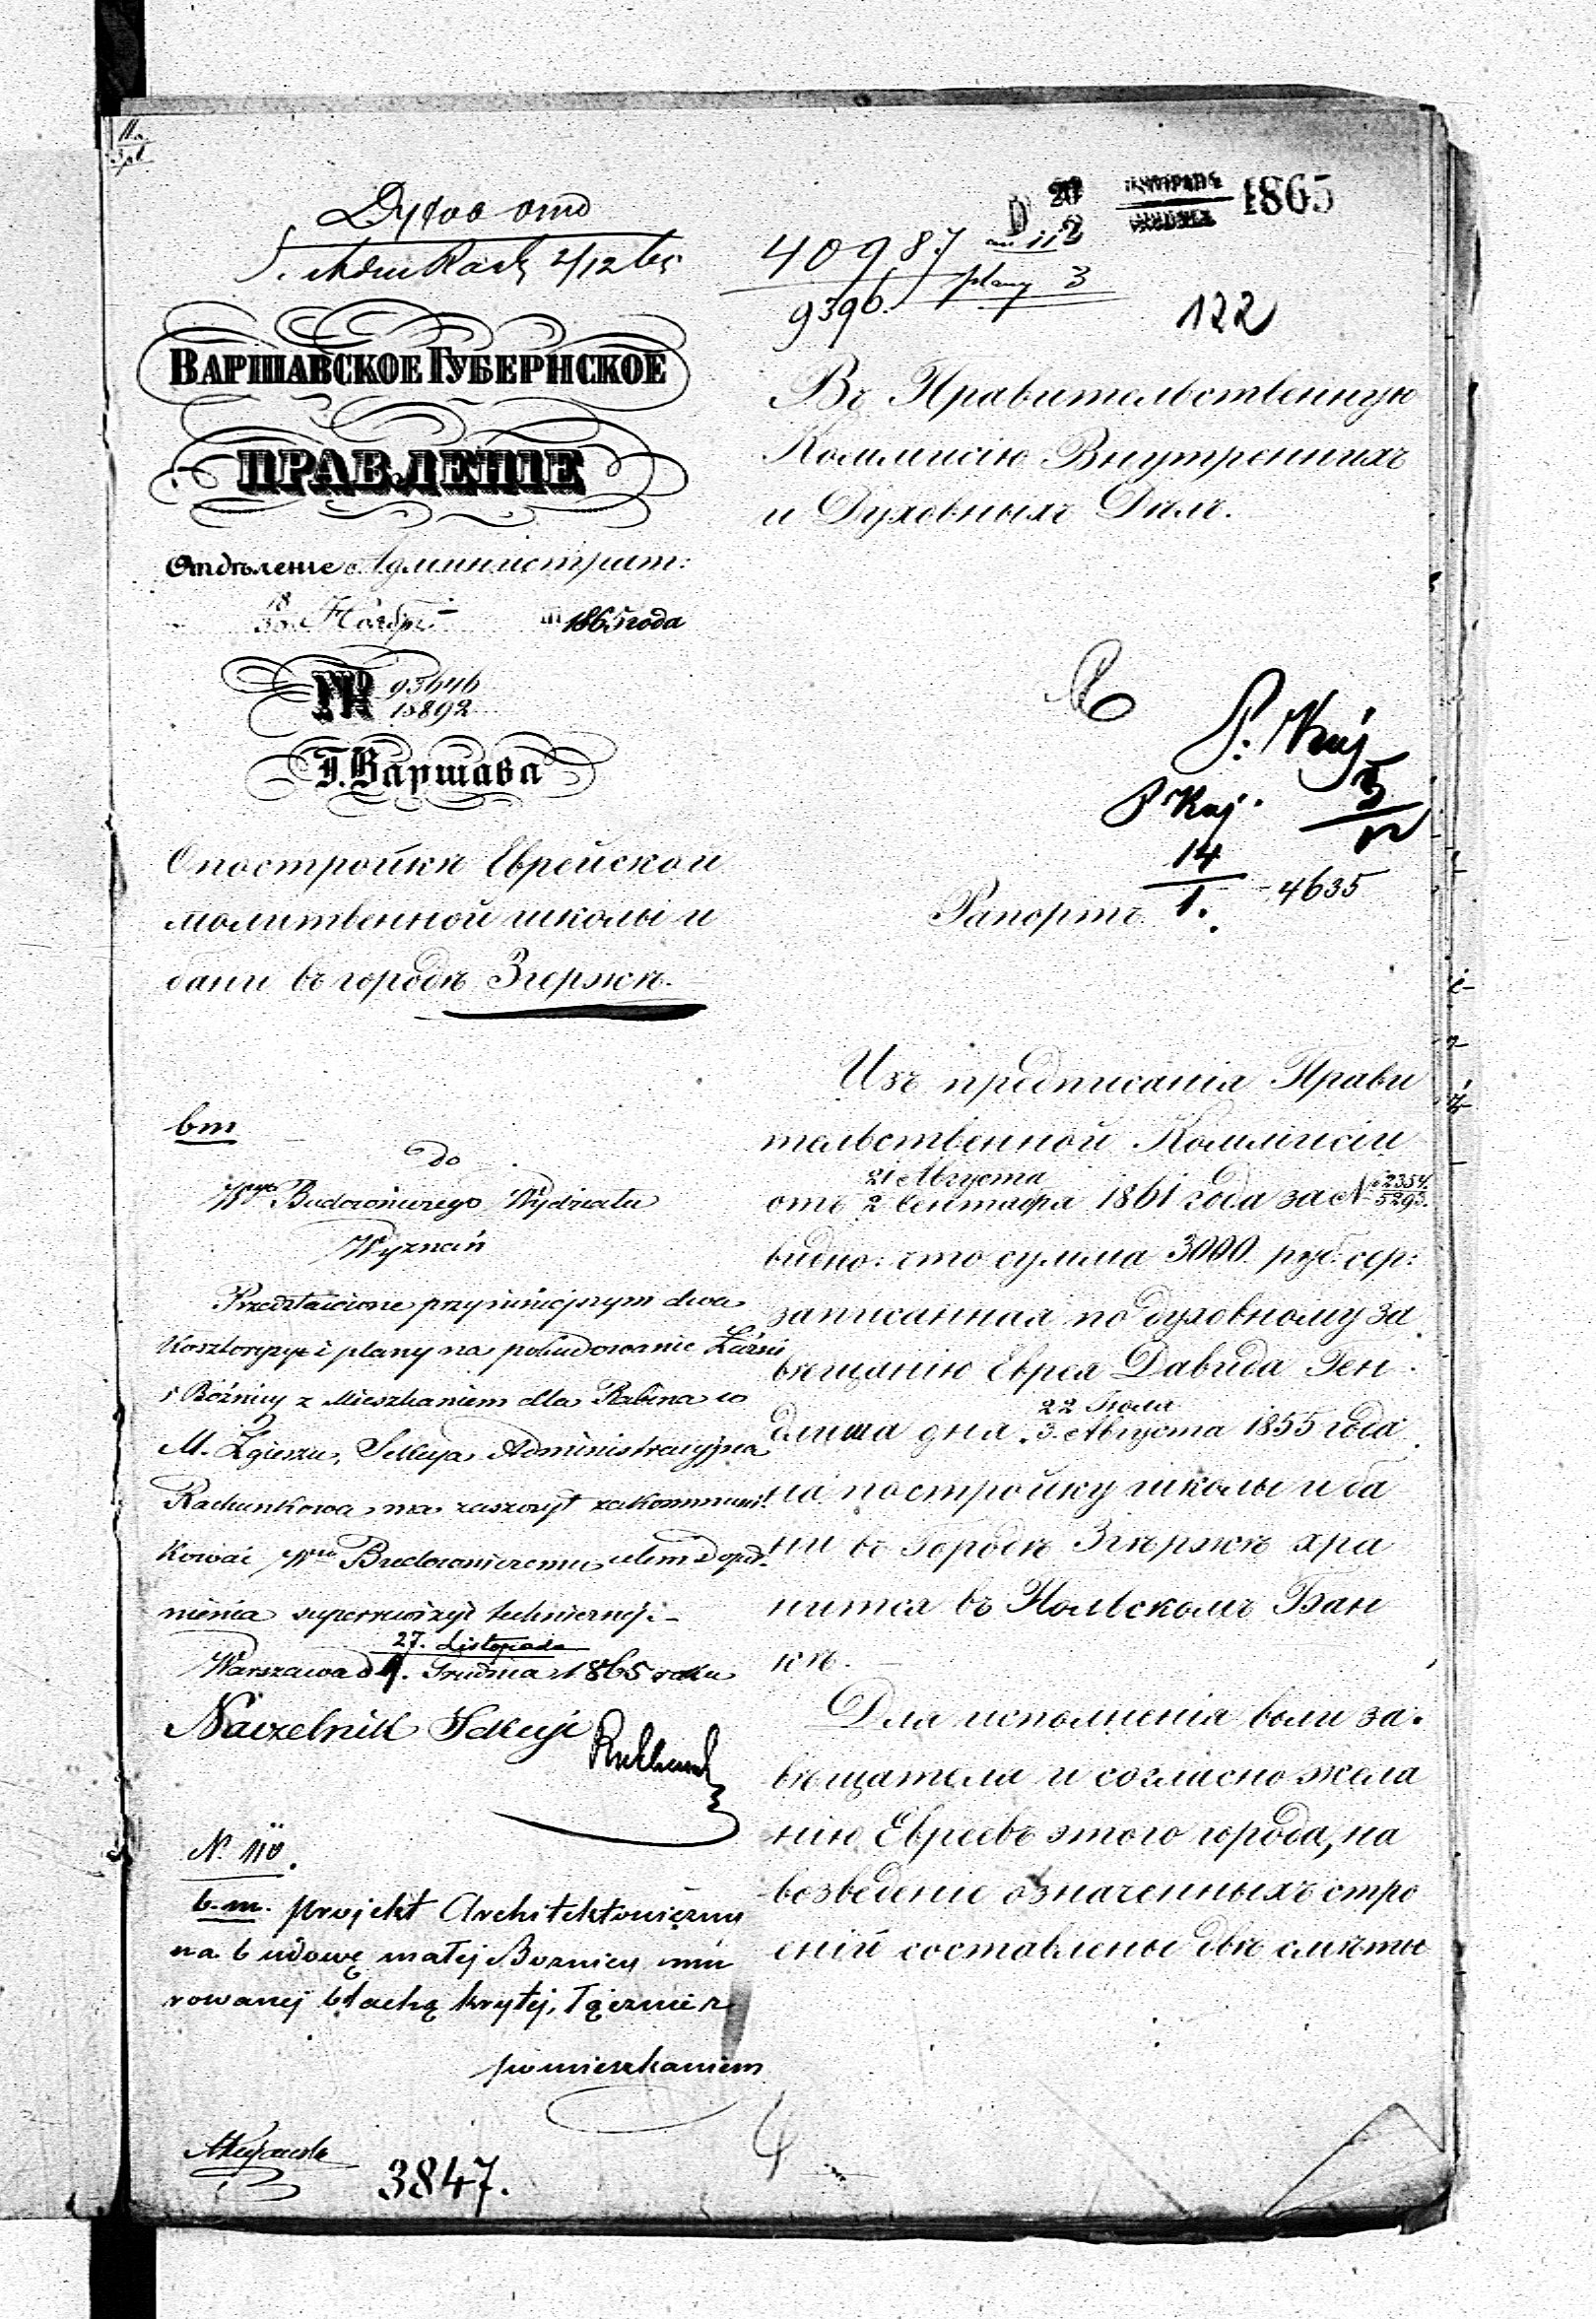 Духов отд
40987
9396.
plany 3
D 20 2
1865
122
ВАРШАВСКОЕ ГУБЕРНСКОЕ
ПРАВЛЕНІЕ
Отдѣленіе Администрат:
18 30 Ноября 1865 года
№ 93646
15892
Г. Варшава
О постройкѣ Еврейской
молитвенной школы и
бани въ городѣ Згержѣ.
Въ Правительственную
Коммисію Внутреннихъ
и Духовныхъ Дѣлъ.
P. Kuj
5
12
P Kuj.
14
1.
4635
Рапортъ.
Изъ предписанія Прави
тельственной Коммисіи
отъ 21 Августа 2 Сентября 1861 года за № 12354. 5293.
видно: что сумма 3000 руб: сер:
записанная по духовному за
вѣщанію Еврея Давида Ген
длиша дня 22 Іюля 3 Августа 1855 года
на постройку школы и ба
ни въ Городѣ Згержѣ хра
нится въ Польскомъ Бан
кѣ.
Для исполненія воли за
вѣщателя и согласно жела
нію Евреевъ этого города, на
возведеніе означенныхъ стро
еній составлены двѣ смѣты
bm
do
Wgo Budowniczego Wydziału
Wyznań
Przedstawione przy niniejszym dwa
Kosztorysy i plany na pobudowanie Łaźni
i Bóżnicy z Mieszkaniem dla Rabina w
M. Zgierzu, Sekcya Administracyjna
Rachunkowa ma zaszczyt zakommuni
kować Wmu Budowniczemu celem dopeł
nienia superrewizyi technicznej. –
27. Listopada
Warszawa d 9. Grudnia 1865 roku
Naczelnik Sekcyi
N. 110.
b.m. projekt Architektoniczny
na budowę małej Boznicy mu
rowanej blachą krytej, Łącznie z
pomieszkaniem
3847.